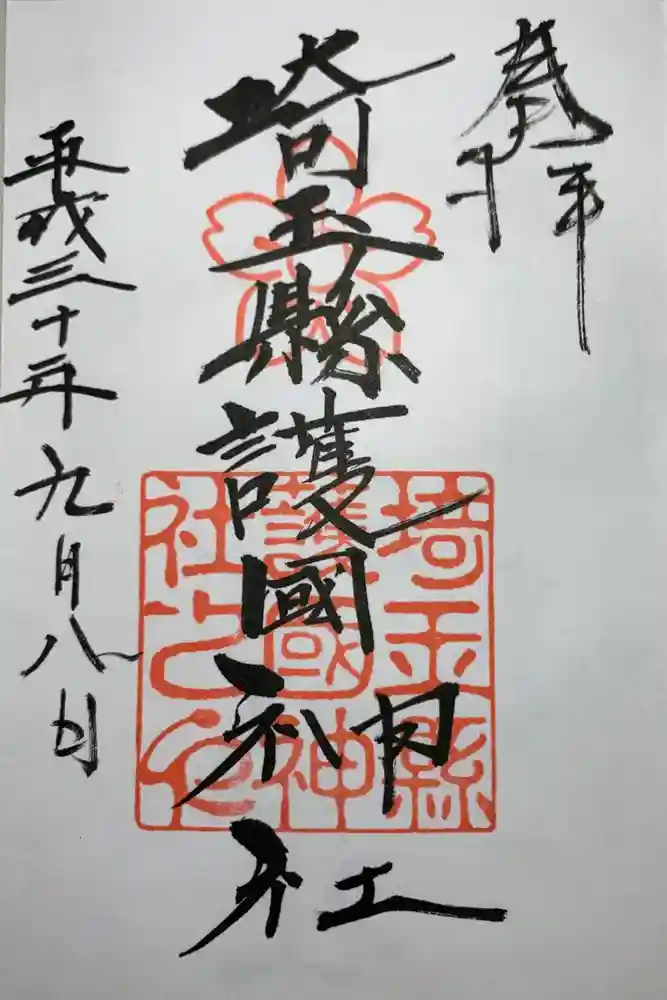 奉拝
埼玉縣護國神社
平成三十年九月八日
埼玉縣
護國神
社之印